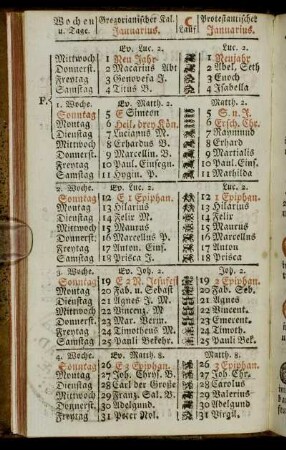 Wochen Gregorianischer Kal. C Protestantischer
u. Tage. Januarius. Lauf. Januarius.
Ev. Luc. 2. Luc. 2.
Mittwoch 1 Neu Jahr 1 Neujahr
Donnerst. 2 Macarius Abt 2 Abel, Seth
Freytag 3 Genovefa J. 3 Enoch
Samstag 4 Titus B. 4 Isabella
F. 1. Woche. Ev. Matth. 2. Matth. 2.
Sonntag 5 E Simeon 5 S. n. J.
Montag 6 Heil. drey Kön. 6 Ersch. Chr.
Dienstag 7 Lucianus M. 7 Raymund
Mittwoch 8 Erhardus B. 8 Erhard
Donnerst. 9 Marcellin. B. 9 Martialis
Freytag 10 Paul. Einsegn. 10 Paul. Einf.
Samstag 11 Hygin. P. 11 Mathilda
2. Woche. Ev. Luc. 2. Luc. 2.
Sonntag 12 E 1 Epiphan. 12 1 Epiphan.
Montag 13 Hilarius 13 Hilarius
Dienstag 14 Felix M. 14 Felir
Mittwoch 15 Maurus 15 Maurus
Donnerst. 16 Marcellus P. 16 Marcellus
Freytag 17 Anton. Einf. 17 Anton
Samstag 18 Prisca J. 18 Prisca
3. Woche. Ev. Joh. 2. Joh. 2.
Sonntag 19 E 2 N. Jesusfest 19 2 Epiphan.
Montag 20 Fab. u. Sebast 20 Fab. Seb.
Dienstag 21 Agnes J. M. 21 Agnes
Mittwoch 22 Vincent. M 22 Vincent.
Donnerst. 23 Mar. Verm. 23 Emerent.
Freytag 24 Timotheus M. 24 Timoth.
Samstag 25 Pauli Bekehr. 25 Pauli Bek.
4. Woche. Ev. Matth. 8. Matth. 8.
Sonntag 26 E 3 Epiphan. 26 3 Epiphan.
Montag 27 Joh. Chrys. B. 27 Joh Chr.
Dienstag 28 Carl der Große 28 Carolus
Mittwoch 29 Franz. Sal. B. 29 Valerius
Donnerst. 30 Adelgund. 30 Adelgund
Freytag 31 Peter Nol. 31 Virgil.